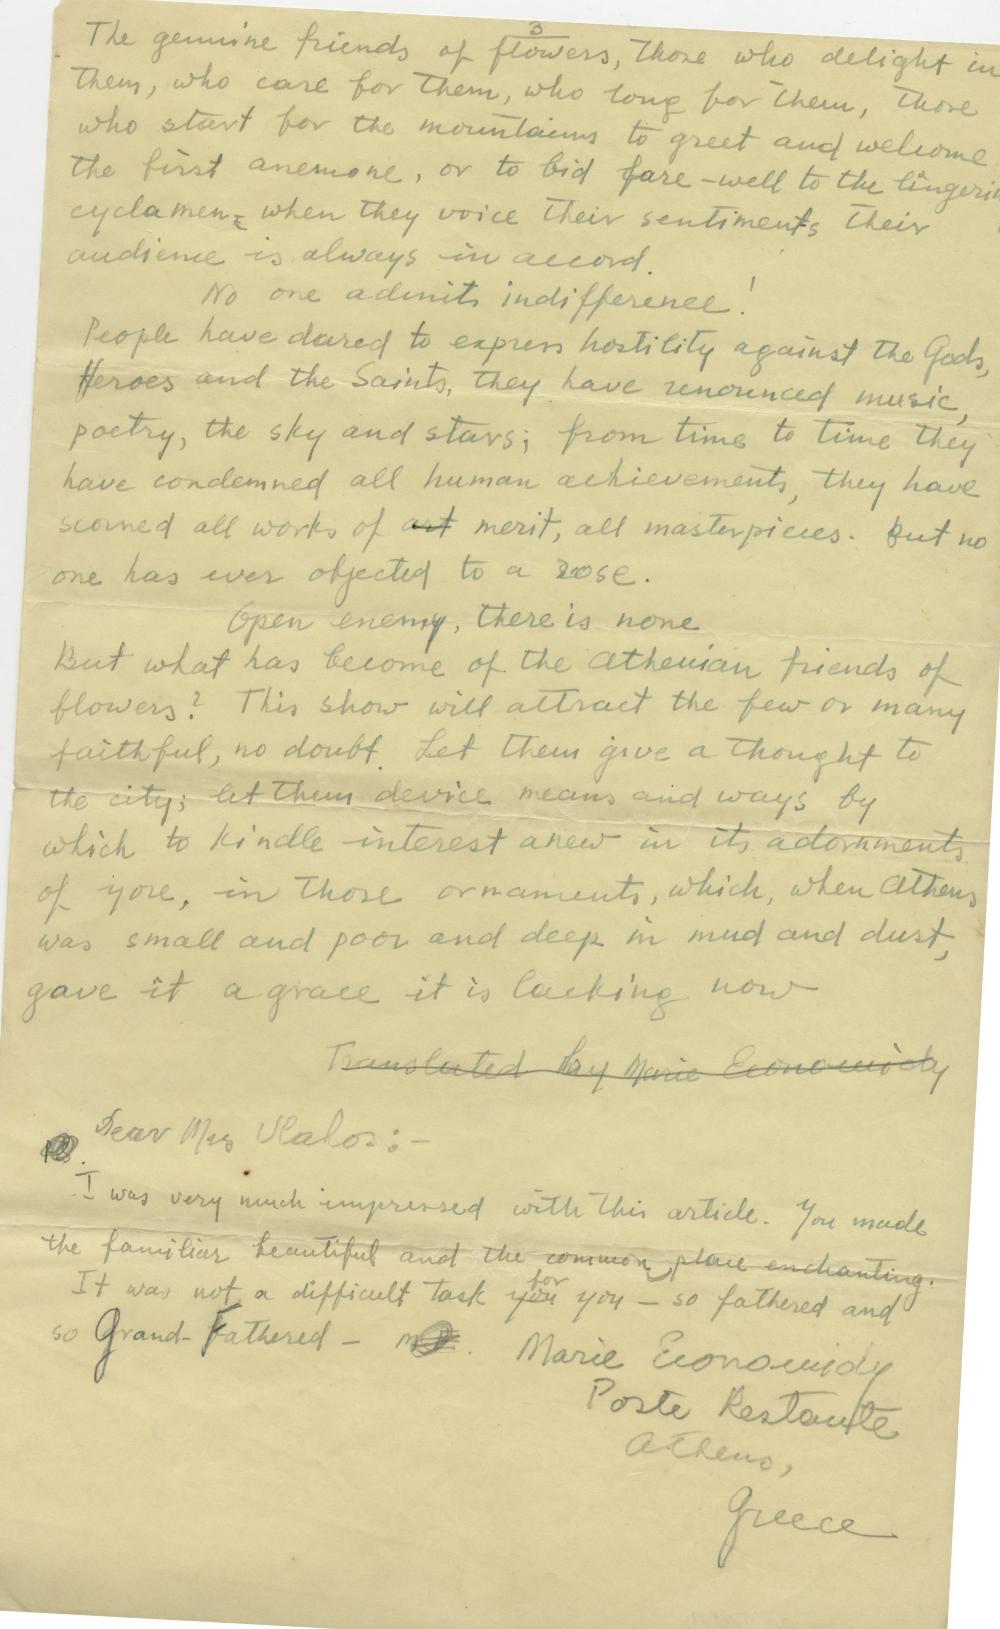 3
The genuine friends of flowers, those who delight in
them, who care for them, who long for them, those
who start for the mountains to greet and welcome
the first anemone, or to bid fare-well to the lingerin
cyclamen, when they voice their sentiments their
audience is always in accord.
No one admits indifference!
People have dared to express hostility against the Gods,
Heroes and the Saints, they have renounced music,
poetry, the sky and stars; from time to time they
have condemned all human achievements, they have
scorned all works of art merit, all masterpieces. But no
one has ever objected to a rose.
Open enemy, there is none
But what has become of the Athenian friends of
flowers? This show will attract the few or many
faithful, no doubt. Let them give a thought to
the city; let them device means and ways by
which to kindle interest anew in its adornments
of yore, in those ornaments, which, when Athens
was small and poor and deep in mud and dust,
gave it a grace it is lacking now
Translated by Marie Economidy
Dear Mrs Vlahos:-
I was very much impressed with this article. You made
the familiar beautiful and the common place enchanting.
It was not a difficult task for you - so fathered and
so Grand-Fathered -
Marie Economidy
Poste Restante
Athens,
Greece